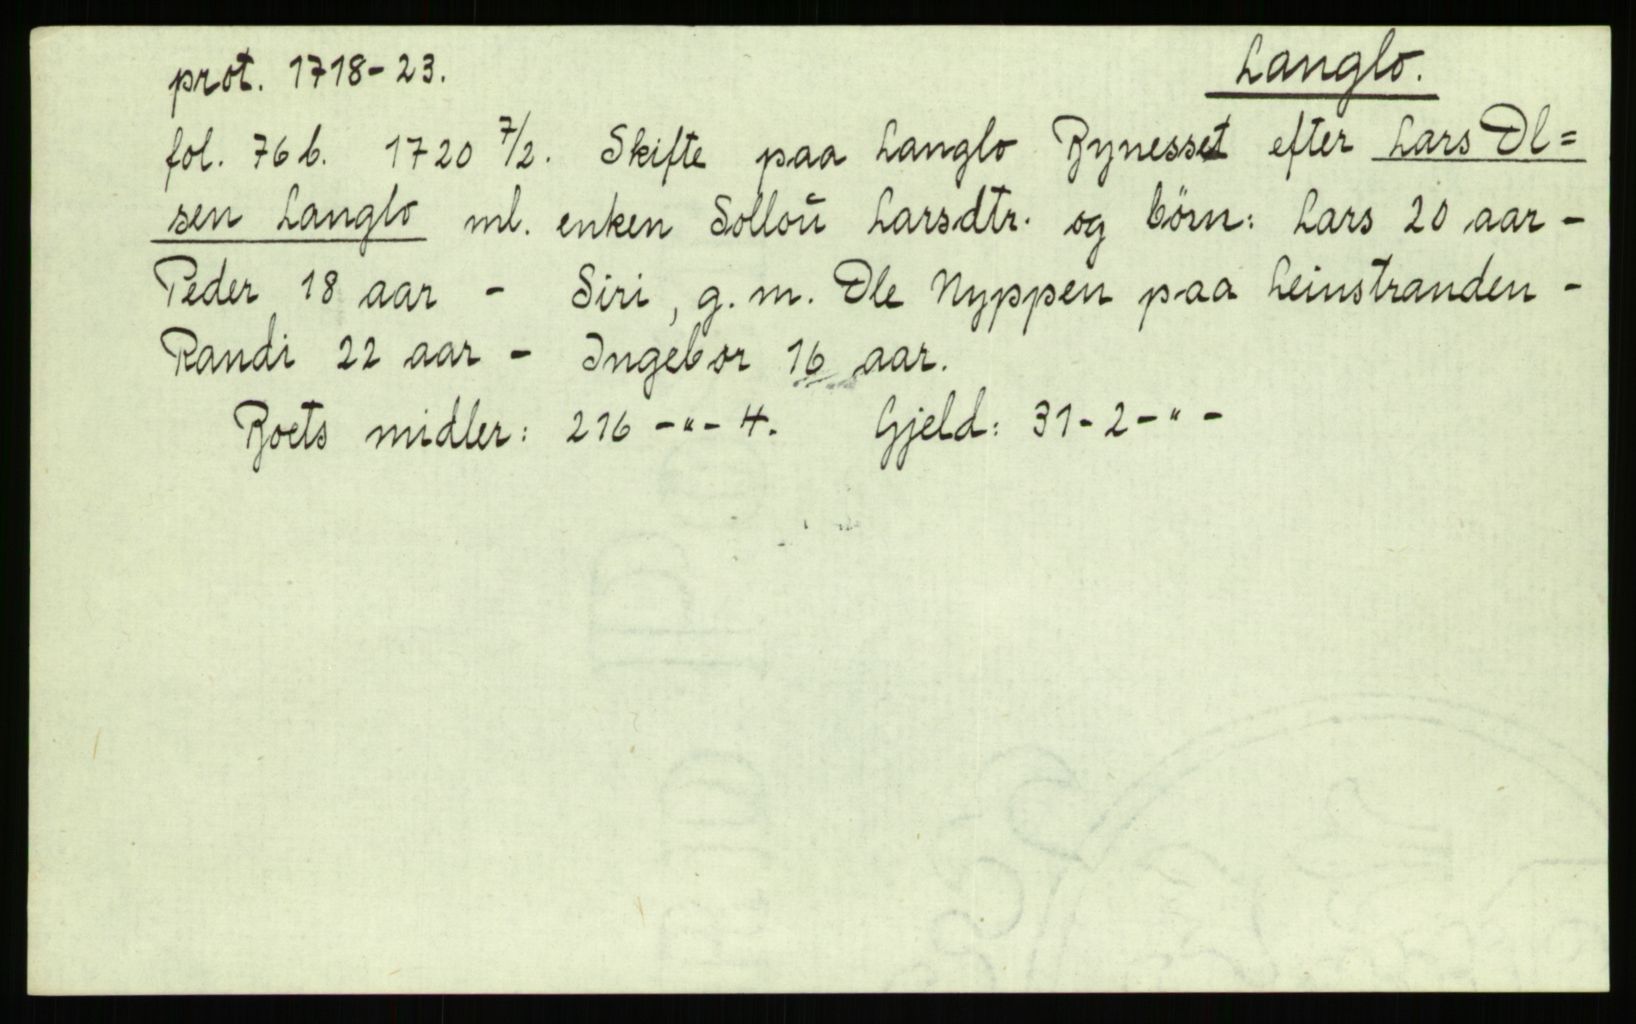 prot. 1718-23.
Langlo.
fol. 76 b. 1720 7/2. Skifte paa Langlo Bynesset efter Lars Ol=
sen Langlo ml. enken Sollou Larsdtr. og børn: Lars 20 aar -
Peder 18 aar - Siri, g. m. Ole Nyppen paa Leinstranden -
Randi 22 aar - Ingebor 16 aar.
Boets midler: 216 - " - 4. Gjeld: 31 - 2 - " -